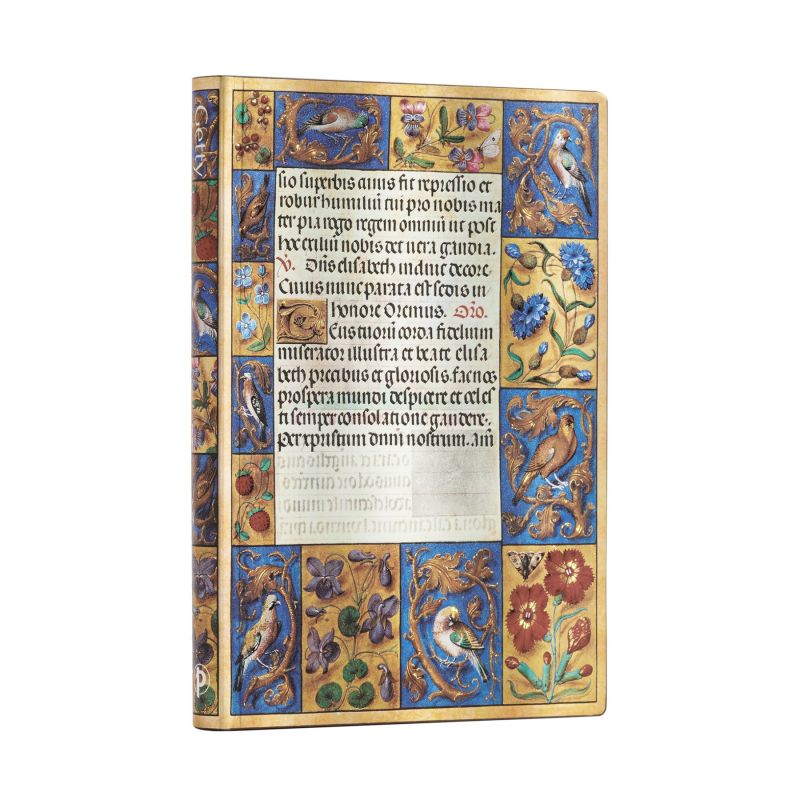 Getty
sio superbis cuius fit repressio et
robur humiliū tui pro nobis ma
ter pia rogo regem omniū ut post
hoc exiliū nobis det uera gaudia.
V. Dn̄s elisabeth induit decorē
Cuius nunc parata est sedis in
honore Oremus. Oro.
Eus tuorū corda fidelium
miserator illustra et beate elisa
beth precibus et gloriosis fac nos
prospera mundi despicere et celes
ti semper consolatione gaudere.
Per xpristum dnm̄ nostrum. am̄
P